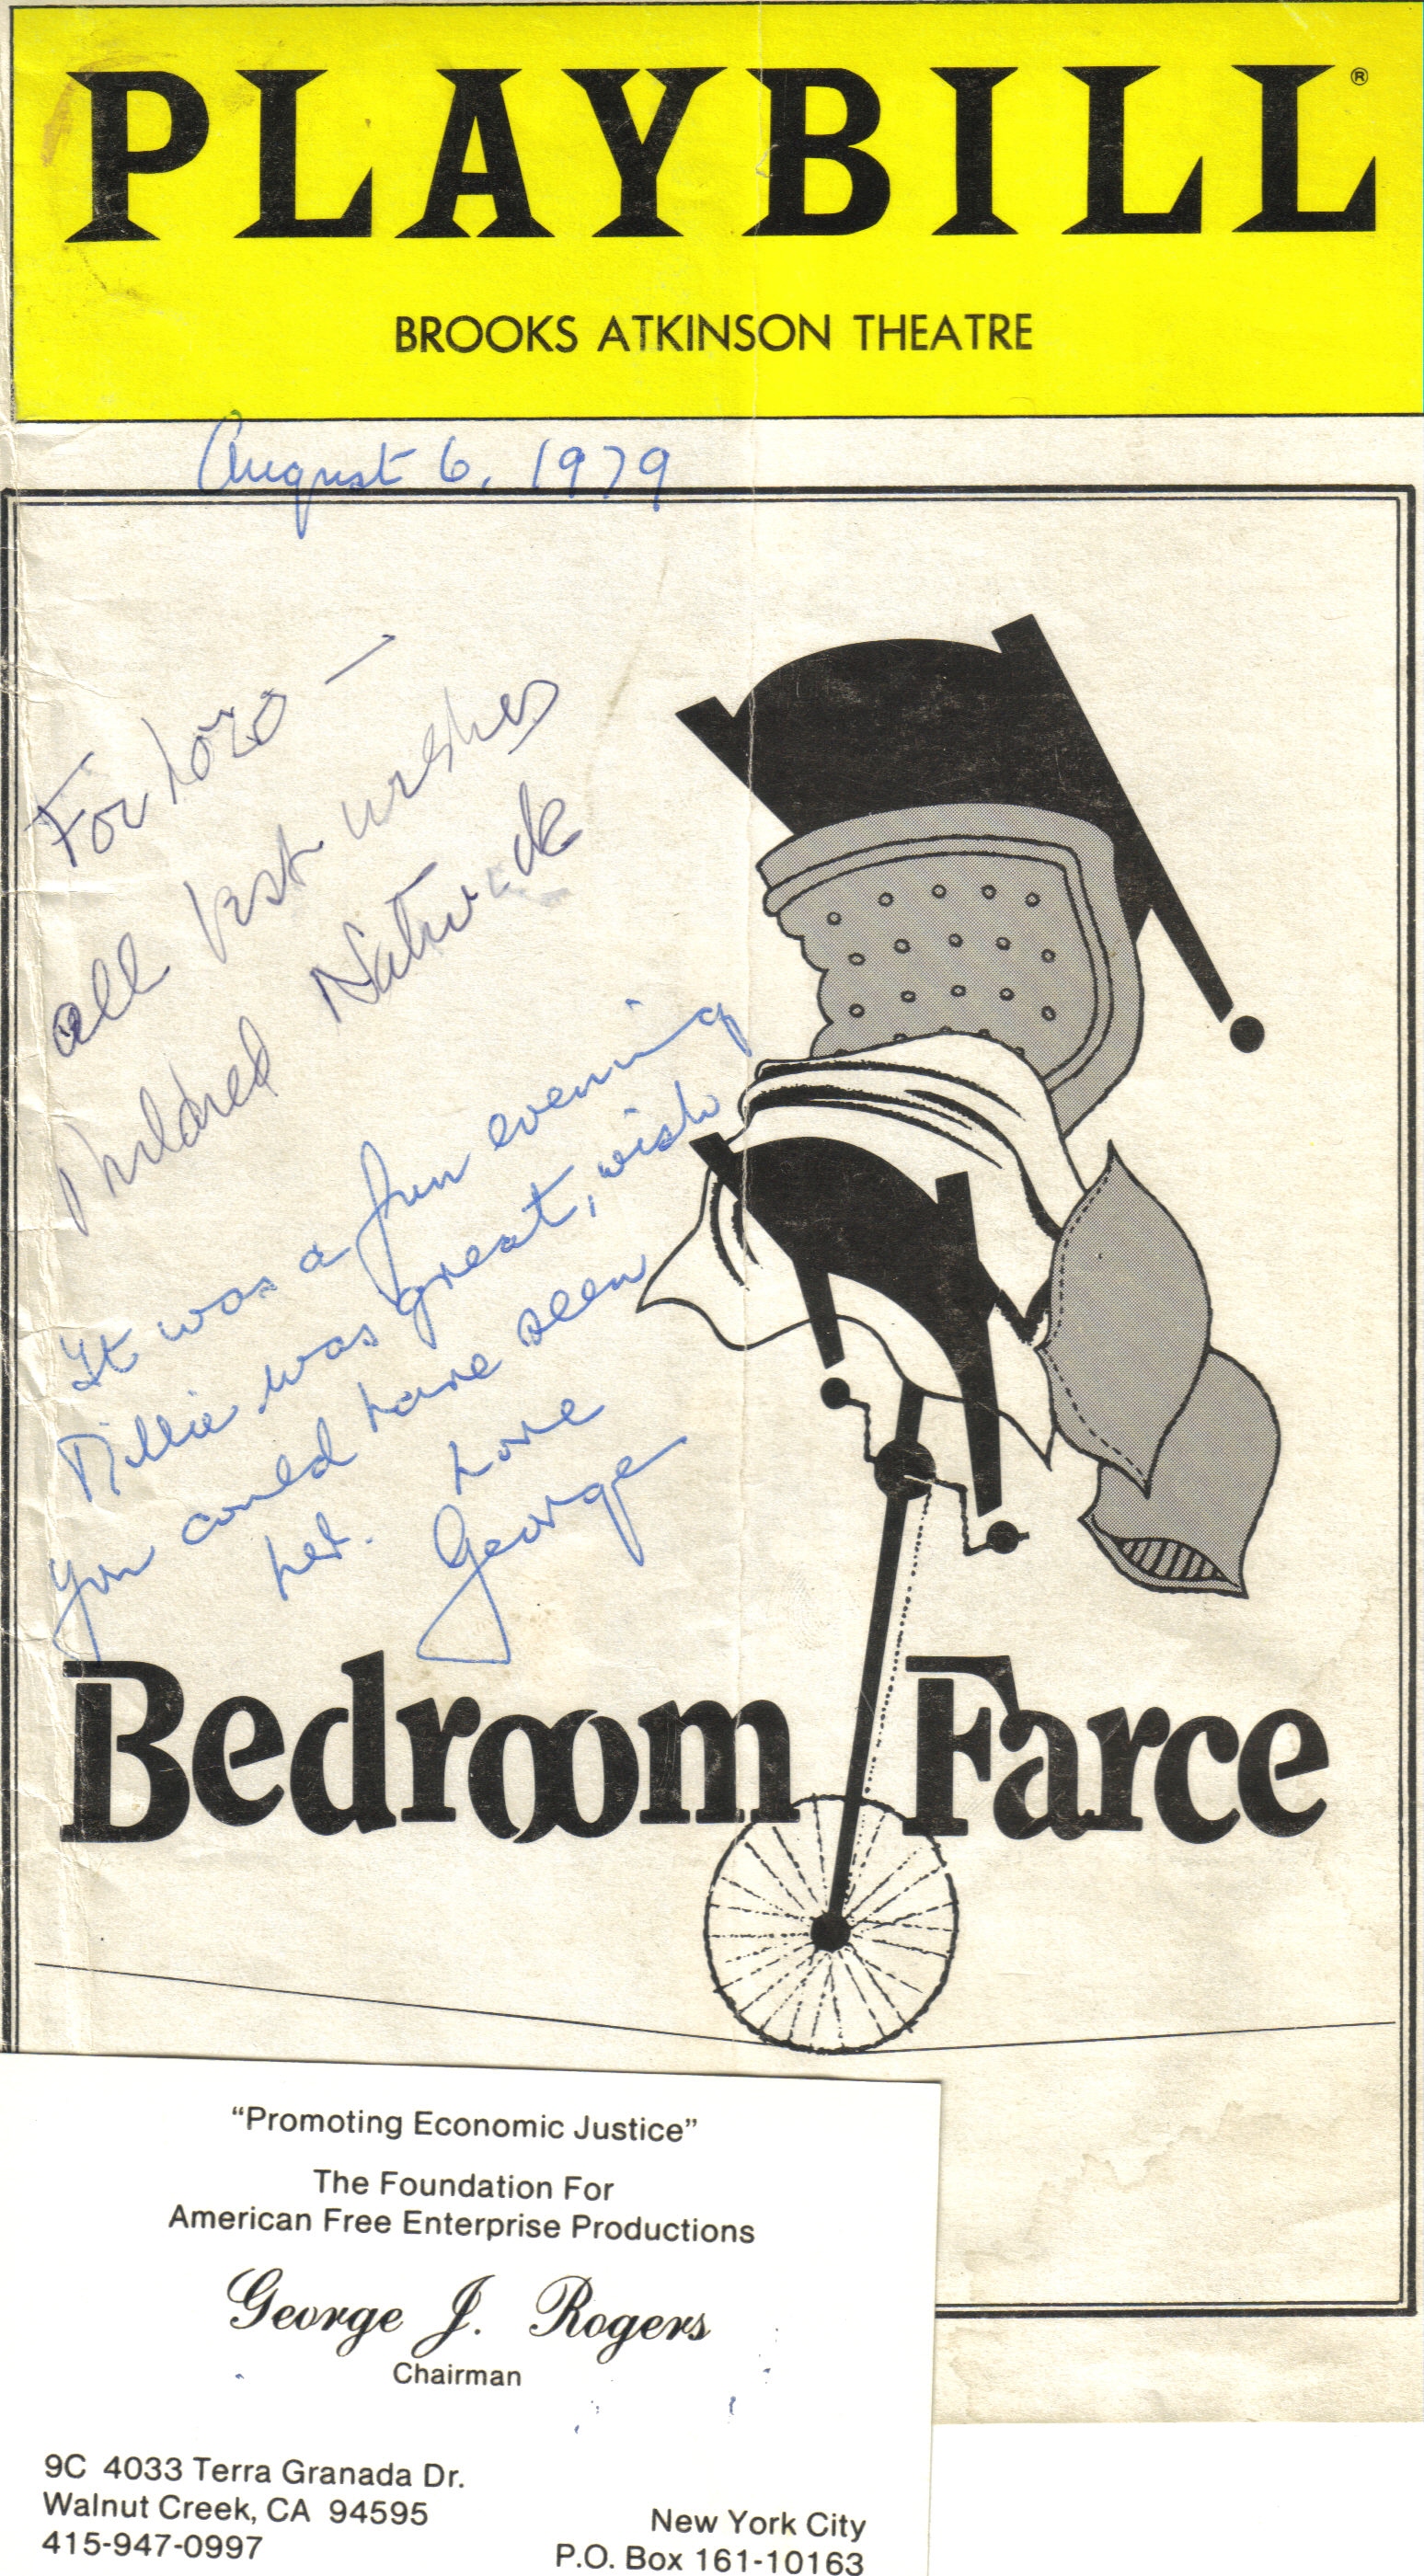 PLAYBILL®
BROOKS ATKINSON THEATRE
August 6, 1979
For Lozo —
all best wishes
Mildred Natwick
It was a fun evening
Millie was great, wish
you could have seen
her. Love
George
Bedroom Farce
“Promoting Economic Justice”
The Foundation For
American Free Enterprise Productions
George J. Rogers
Chairman
9C 4033 Terra Granada Dr.
Walnut Creek, CA 94595
415-947-0997
New York City
P.O. Box 161-10163